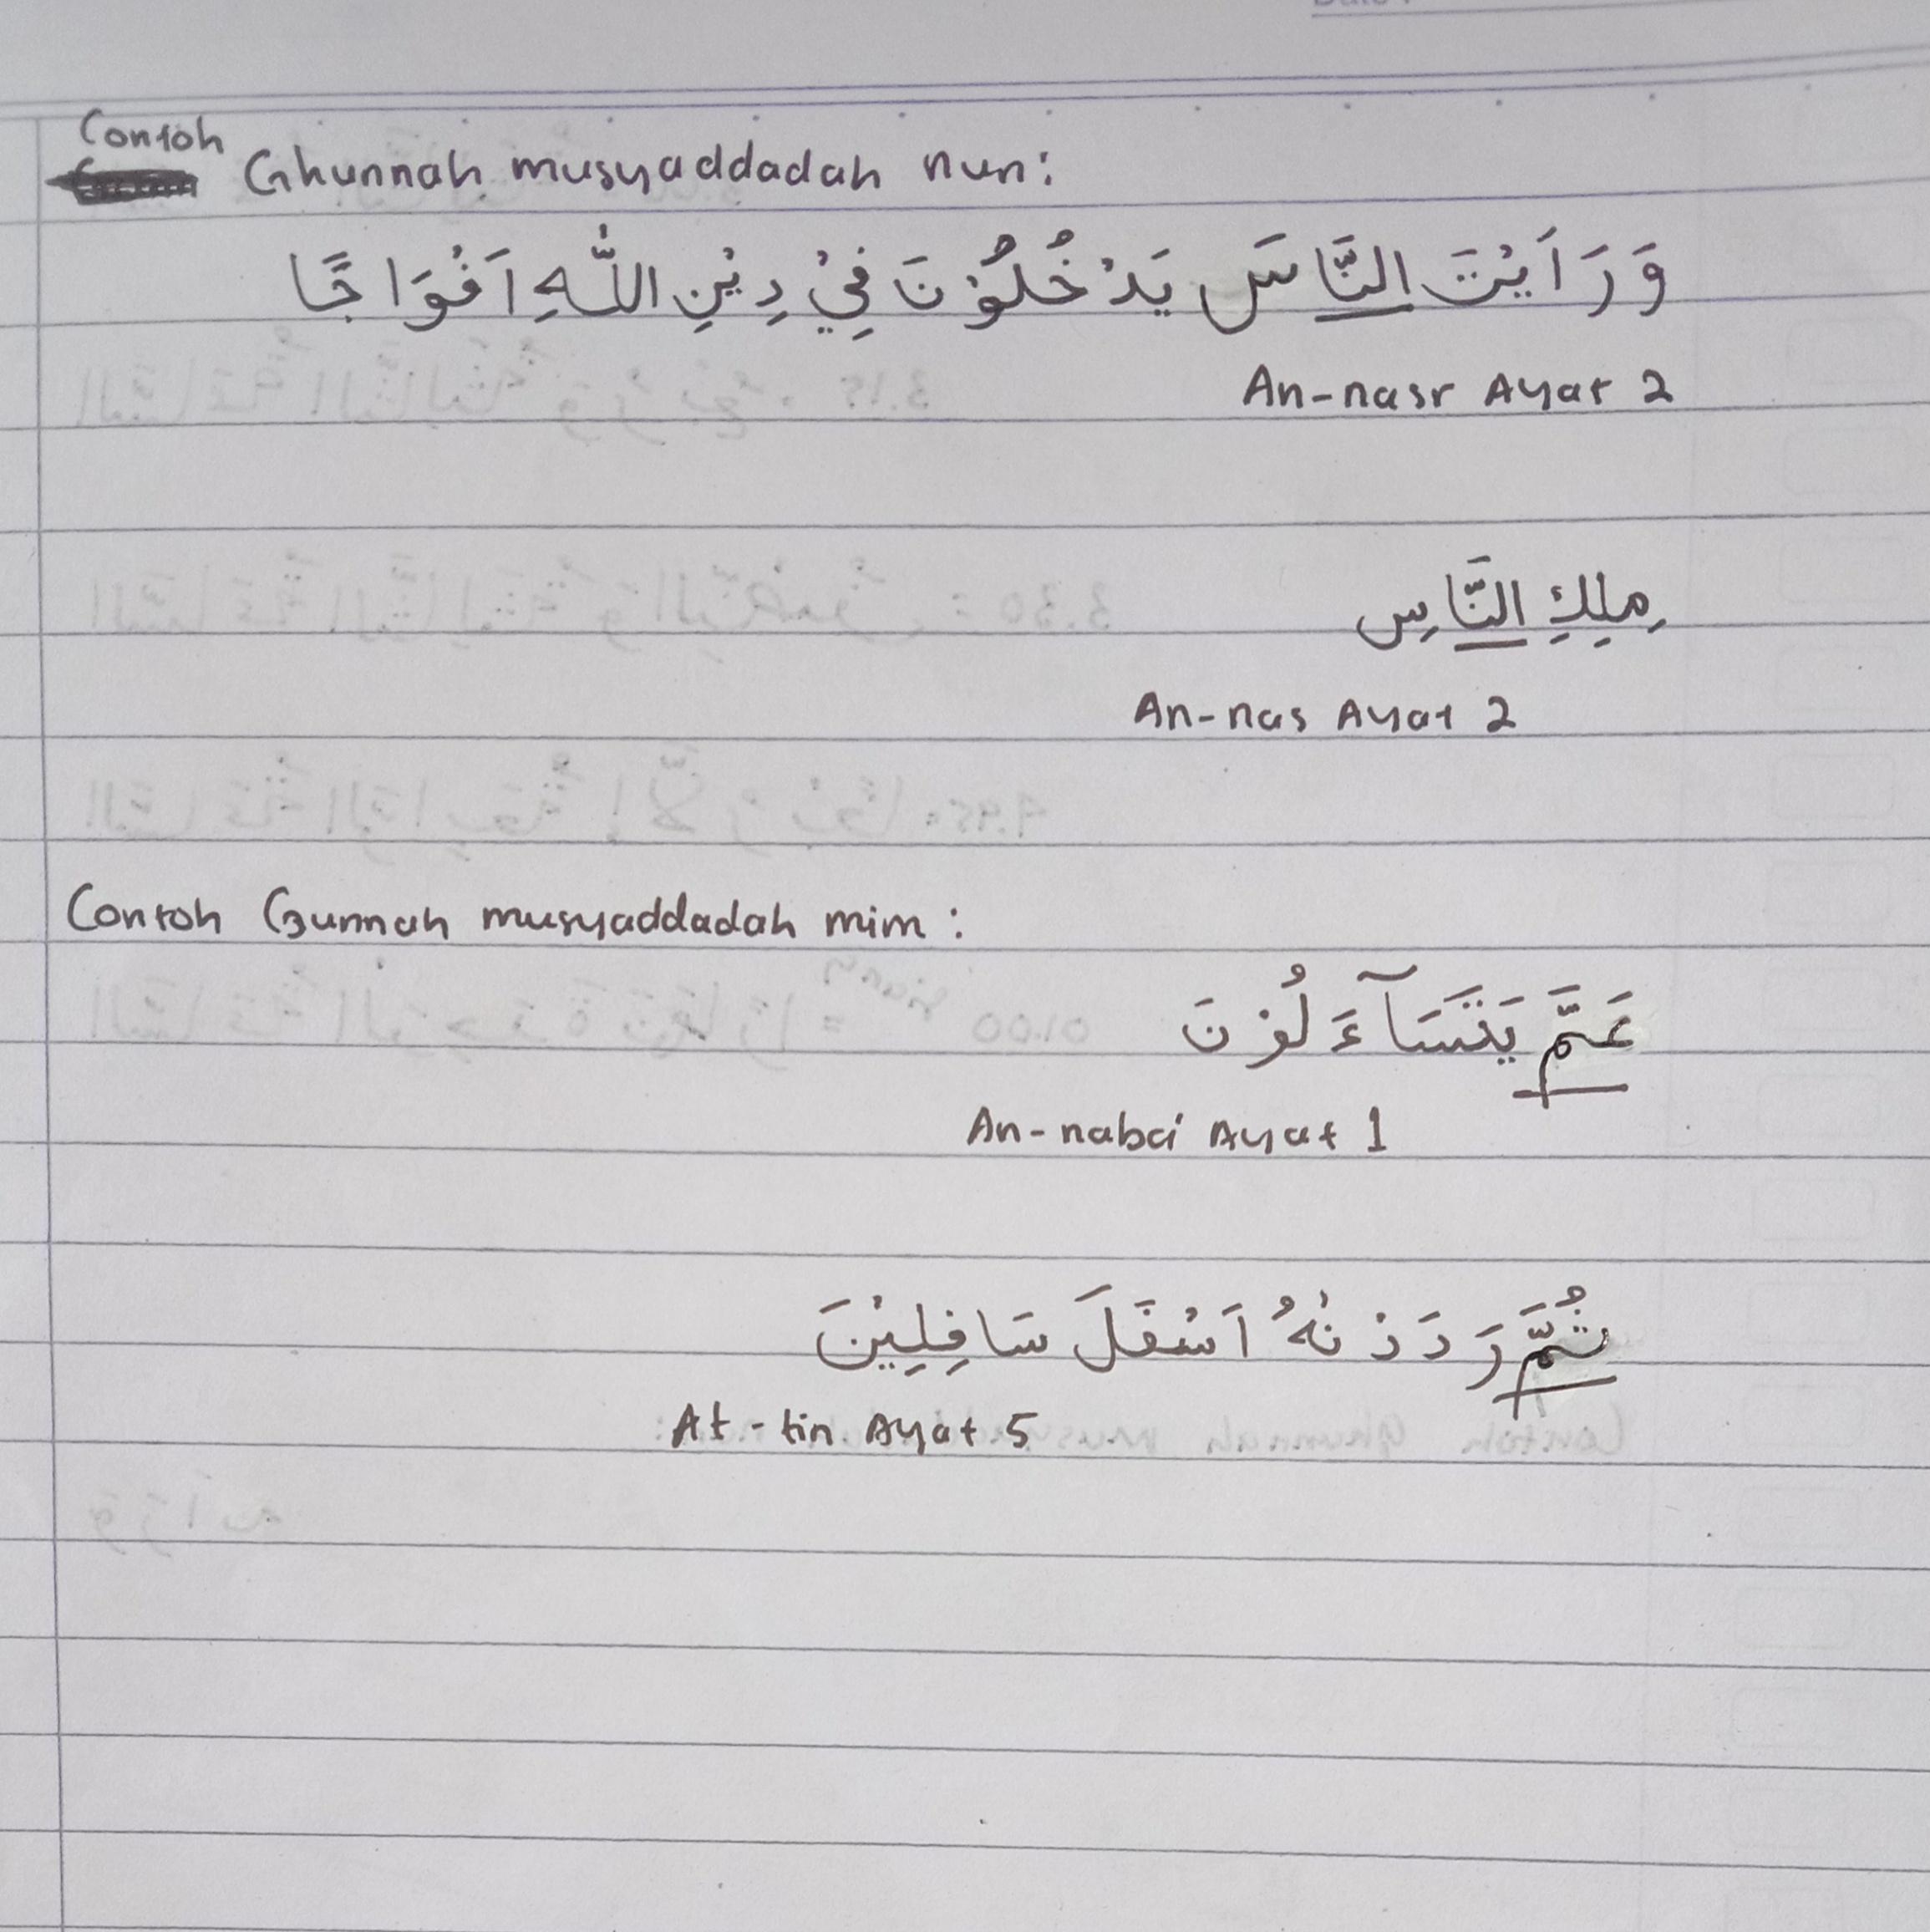 Contoh
Ghunnah musyaddadah nun:
وَرَاَيْتَ النَّاسَ يَدْخُلُوْنَ فِيْ دِيْنِ اللّٰهِ اَفْوَاجًا
An-nasr Ayat 2
مِلِكِ النَّاسِ
An-nas Ayat 2
Contoh Gunnah musyaddadah mim :
عَمَّ يَتَسَآءَلُوْنَ
An-nabai Ayat 1
ثُمَّ رَدَدْنٰهُ اَسْفَلَ سَافِلِيْنَ
At-tin Ayat 5